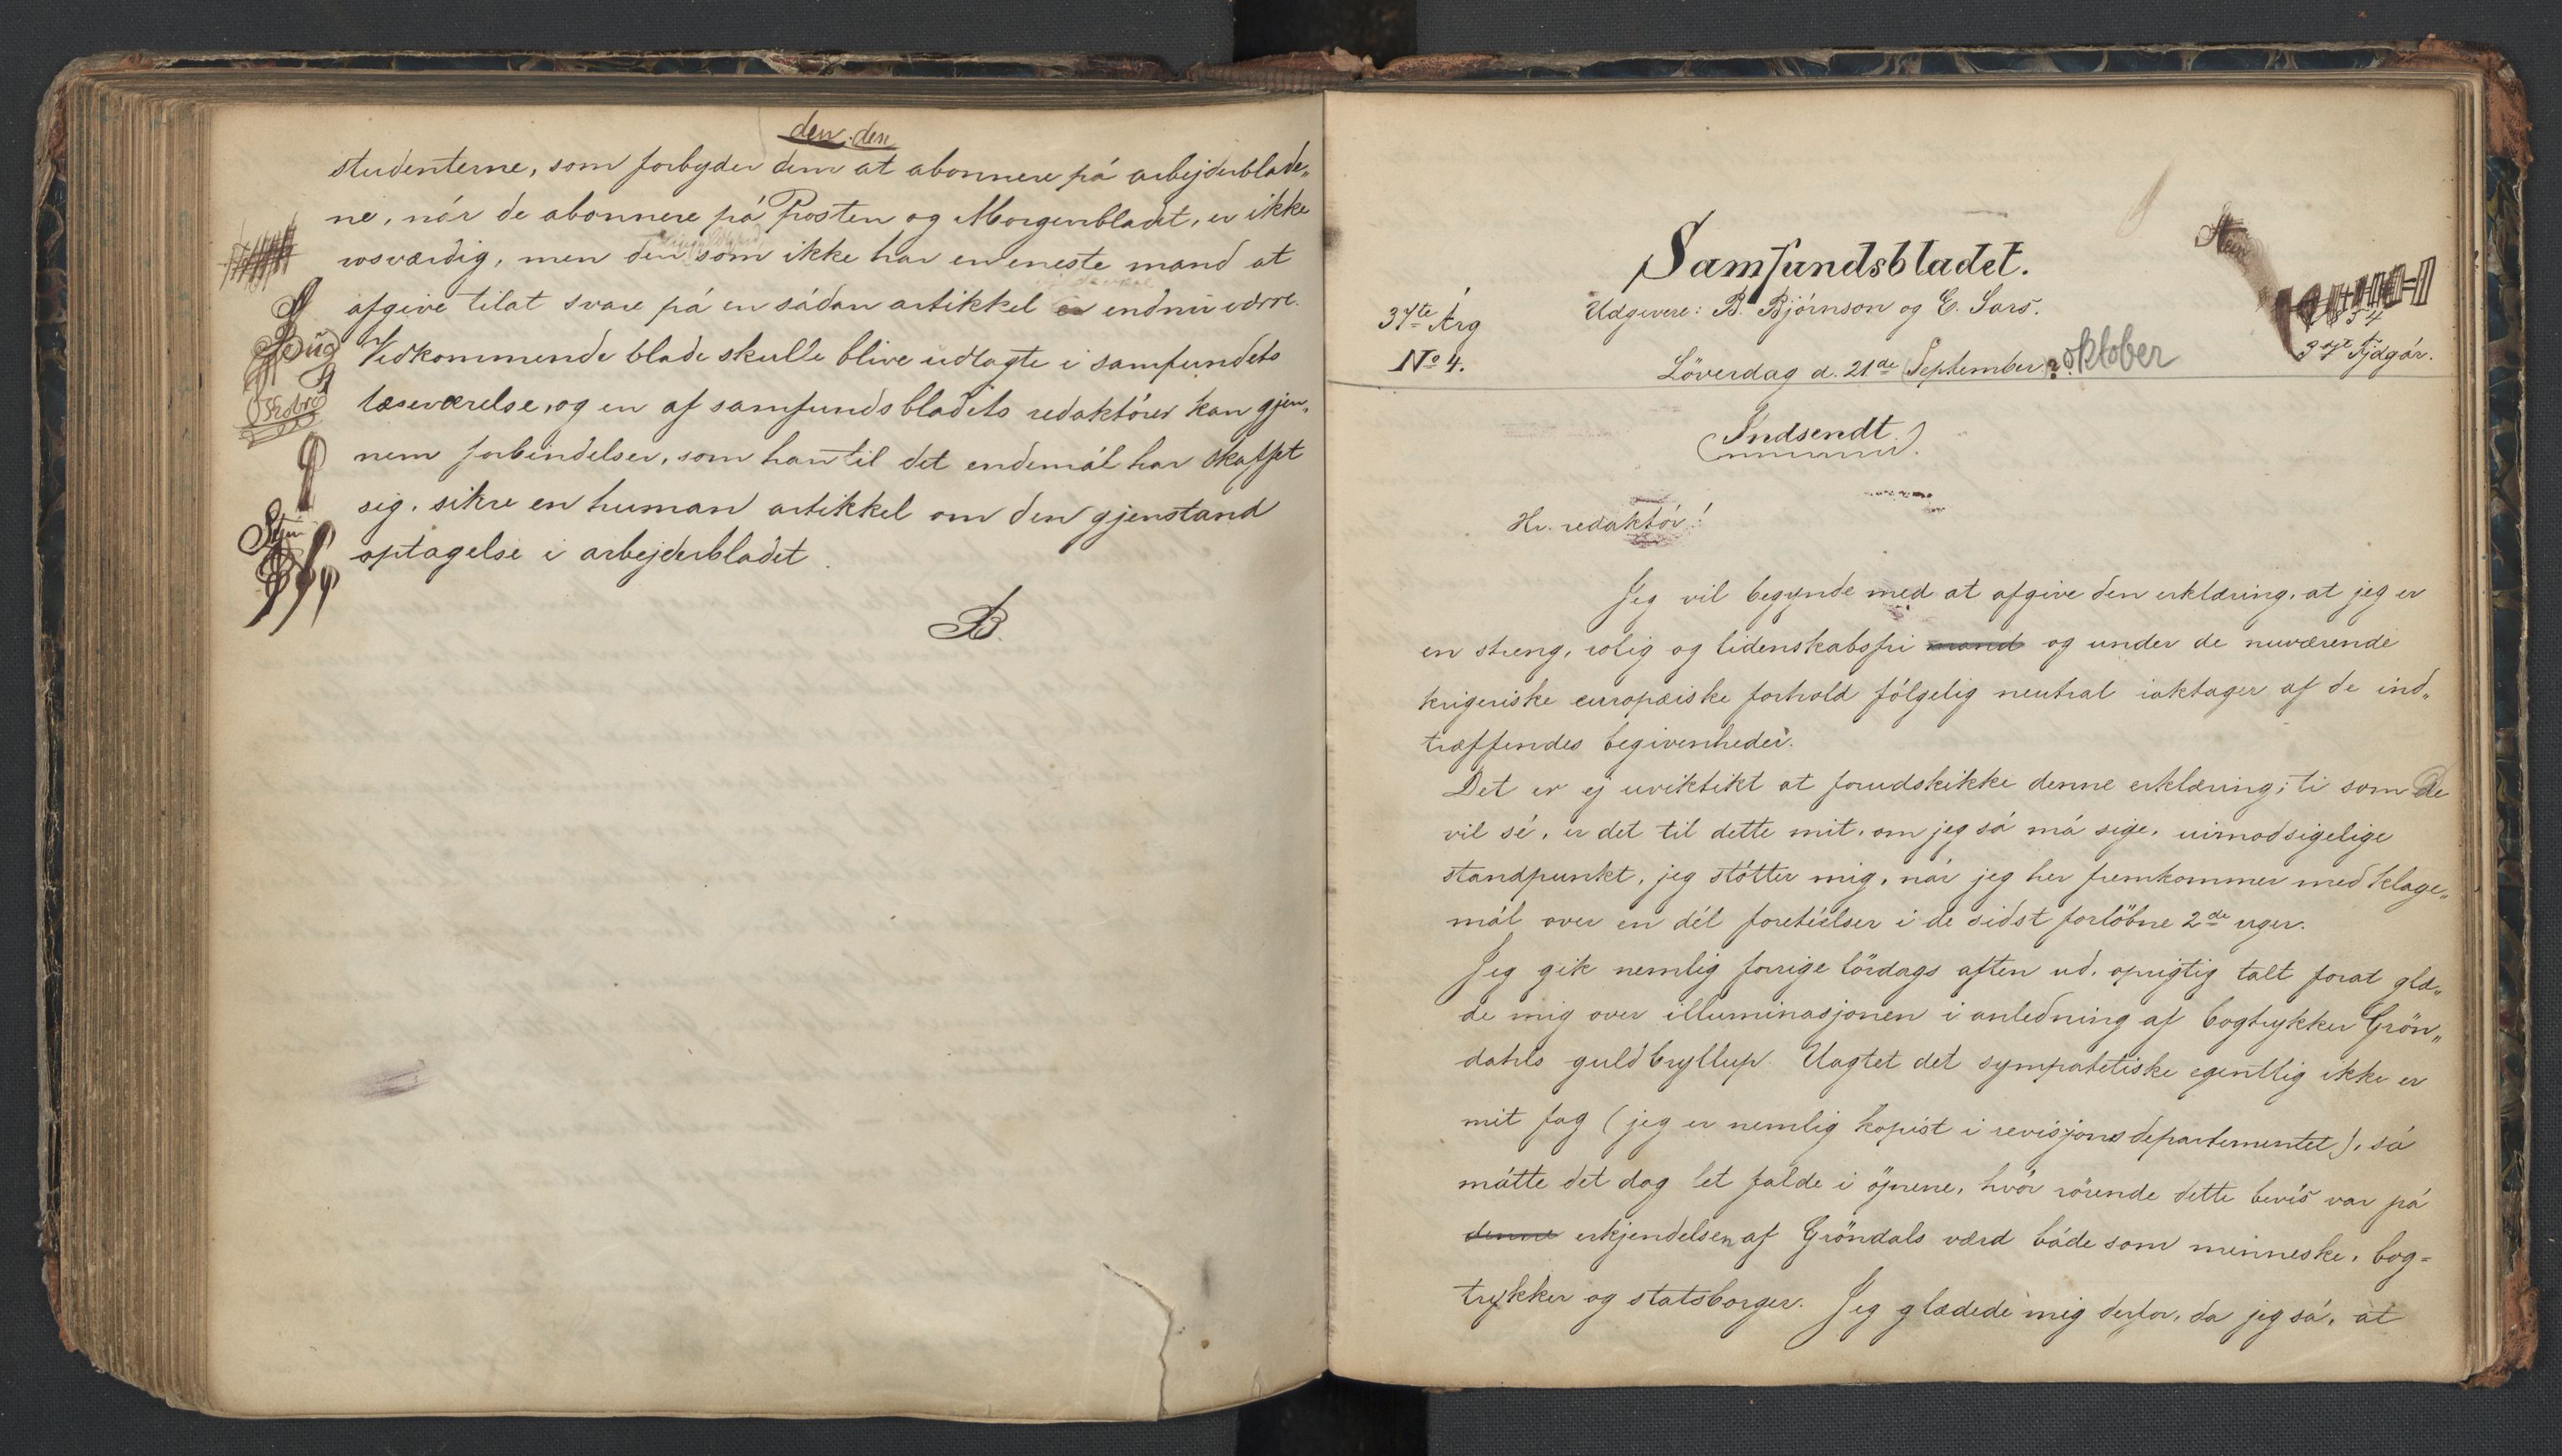 den. den
studenterne, som forbyder dem at abonnere på arbejderblade„
ne, når de abonnere på Posten og Morgenbladet, er ikke
rosværdig, men den som ikke har en eneste mand at
afgive tilat svare på en sådan artikkel er endnu værre.
Vedkommende blade skulle blive udlagte i samfundets
læseværelse, og en af samfundsbladets redaktörer kan gjen„
nem forbindelser, som han til det endemål har skaffet
sig, sikre en human artikkel om den gjenstand
optagelse i arbejderbladet.
B.
Samfundsbladet.
Udgivere: B. Bjórnson og E. Sars.
37te Árg
No 4.
Löverdag d. 21de September? oktober
3die Fjdgár.
(Indsendt.)
Hr. redaktör!
Jeg vil begynde med at afgive den erklæring, at jeg er
en streng, rolig og lidenskabsfri mand og under de nuværende
krigeriske europæiske forhold fölgelig neutral iakttager af de ind„
træffendes begivenheder.
Det er ej uviktikt at forudskikke denne erklæring; ti som De
vil sé, er det til dette mit, om jeg så má sige, uimodsigelige
standpunkt, jeg stötter mig, når jeg her fremkommer med klage„
mål over en dél foreteelser i de sidst forlöbne 2de uger.
Jeg gik nemlig forrige lördags aften ud, oprigtig talt forat glæ„
de mig over illuminasjonen i anledning af bogtrykker Grön„
dahls guldbryllup. Uagtet det sympatetiske egentlig ikke er
mit fag (jeg er nemlig kopist i revisjonsdepartementet), så
måtte det dog let falde i öjnene, hvor rörende dette bevis var på
denne erkjendelsen af Gröndals værd både som menneske, bog=
trykker og statsborger. Jeg glædede mig derfor, da jeg så, at